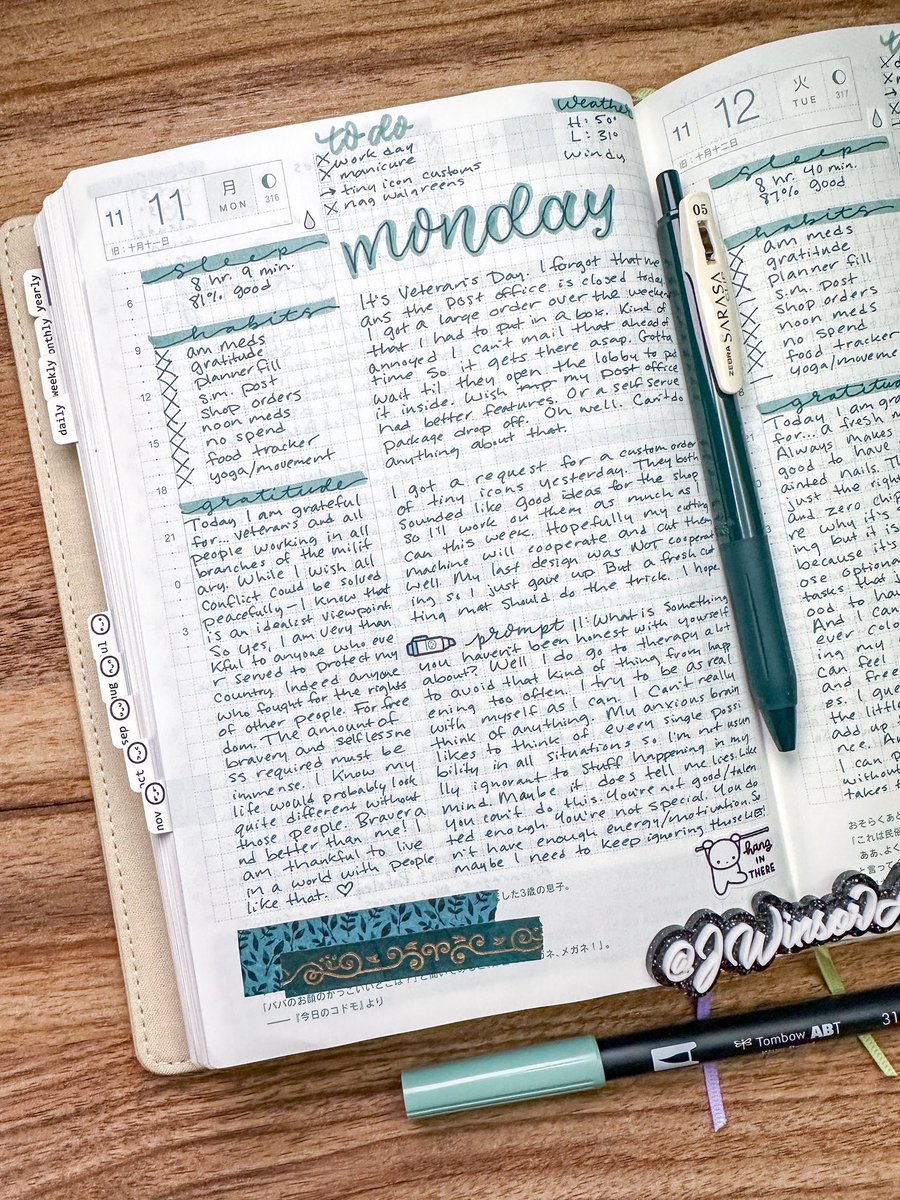 to do
work day
manicure
→ tiny icon customs
nag walgreens
Weather
H: 50°
L: 31°
Windy
11
11
月
MON
316
旧：十月十一日
monday
sleep
8 hr. 9 min.
81% good
habits
am meds
gratitude
planner fill
s.m. post
shop orders
noon meds
no spend
food tracker
yoga/movement
gratitude
Today I am grateful
for... veterans and all
people working in all
branches of the milit
ary. While I wish all
conflict could be solved
peacefully - I know that
is an idealist viewpoint
So yes, I am very than
kful to anyone who eve
r served to protect my
country. Indeed anyone
who fought for the rights
of other people. For free
dom. The amount of
bravery and selflessne
ss required must be
immense. I know my
life would probably look
quite different without
those people. Braver a
nd better than me! I
am thankful to live
in a world with people
like that. ♡
6
9
12
15
18
21
0
3
It's Veteran's Day. I forgot that me
ans the post office is closed today.
I got a large order over the weekend
that I had to put in a box. Kind of
annoyed I can't mail that ahead of
time so it gets there asap. Gotta
wait til they open the lobby to put
it inside. Wish my post office
had better features. Or a self serve
package drop off. Oh well. Can't do
anything about that.
I got a request for a custom order
of tiny icons yesterday. They both
sounded like good ideas for the shop
So I'll work on them as much as I
can this week. Hopefully my cutting
machine will cooperate and cut them
well. My last design was NOT cooperat
ing so I just gave up. But a fresh cut
ting mat should do the trick. I hope.
prompt 11: What is something
you haven't been honest with yourself
about? Well, I do go to therapy a lot
to avoid that kind of thing from happ
ening too often. I try to be as real
with myself as I can. I can't really
think of anything. My anxious brain
likes to think of every single possi
bility in all situations so I'm not usua
lly ignorant to stuff happening in my
mind. Maybe it does tell me lies. Like
you can't do this. You're not good/talen
ted enough. You're not special. You do
n't have enough energy/motivation. So
maybe I need to keep ignoring those LIES!
hang
IN
THERE
した3歳の息子。
ネ、メガネ！」。
「パパのお顔のかっこいいとこは
——『今日のコドモ』より
11
12
火
TUE
317
旧：十月十二日
sleep
8 hr. 40 min.
87% good
habits
am meds
gratitude
planner fill
s.m. post
shop orders
noon meds
no spend
food tracker
yoga/moveme
gratitude
Today I am gra
for... a fresh m
Always makes
good to have
ainted nails. Th
just the righ
and zero chip
re why it's
ing but it is
because it's
ose optional
tasks that j
ood. To ha
And I can
ever colo
ing my
can feel
and free
es. I gue
the little
add up
nce. An
I can p
without
takes t
おそらくあと
「これは民俗
ああ、よく
と言って
05
ZEBRA SARASA
@JWinsor
Tombow ABT
31
yearly
monthly
weekly
daily
jul
aug
sep
oct
nov